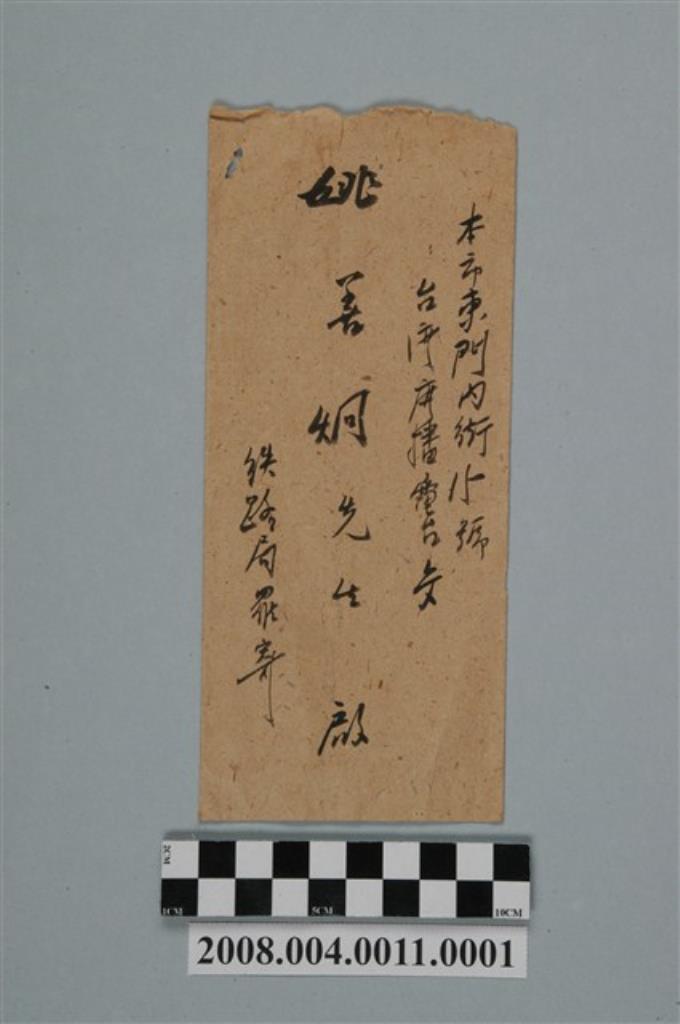 本市東門內街15號
台灣廣播電台交
姚善炯先生 啟
鉄路局羅寄
2CM
1CM 5CM 10CM
2008.004.0011.0001